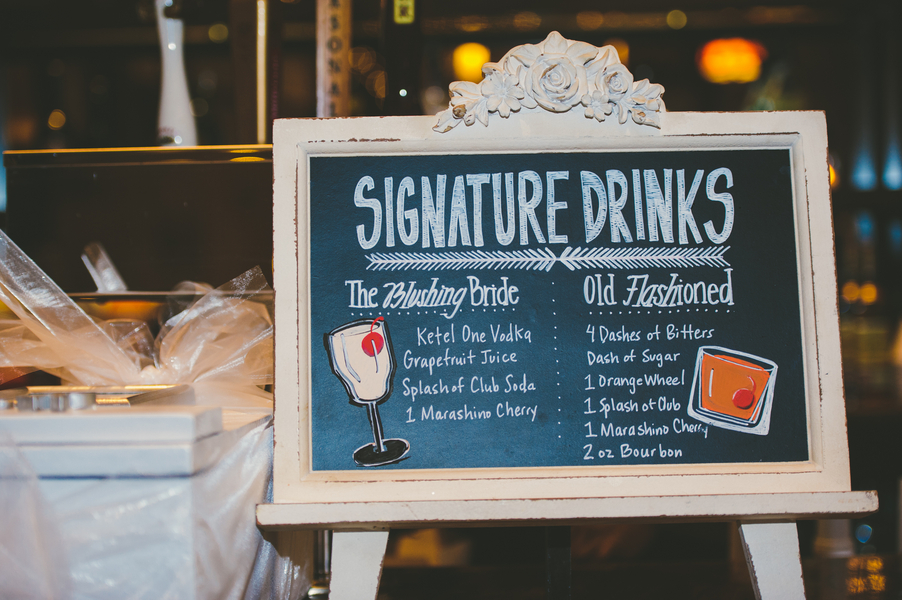 SIGNATURE DRINKS
The Blushing Bride
Ketel One Vodka
Grapefruit Juice
Splash of Club Soda
1 Marashino Cherry
Old Flashioned
4 Dashes of Bitters
Dash of Sugar
1 Orange Wheel
1 Splash of Club
1 Marashino Cherry
2 oz Bourbon